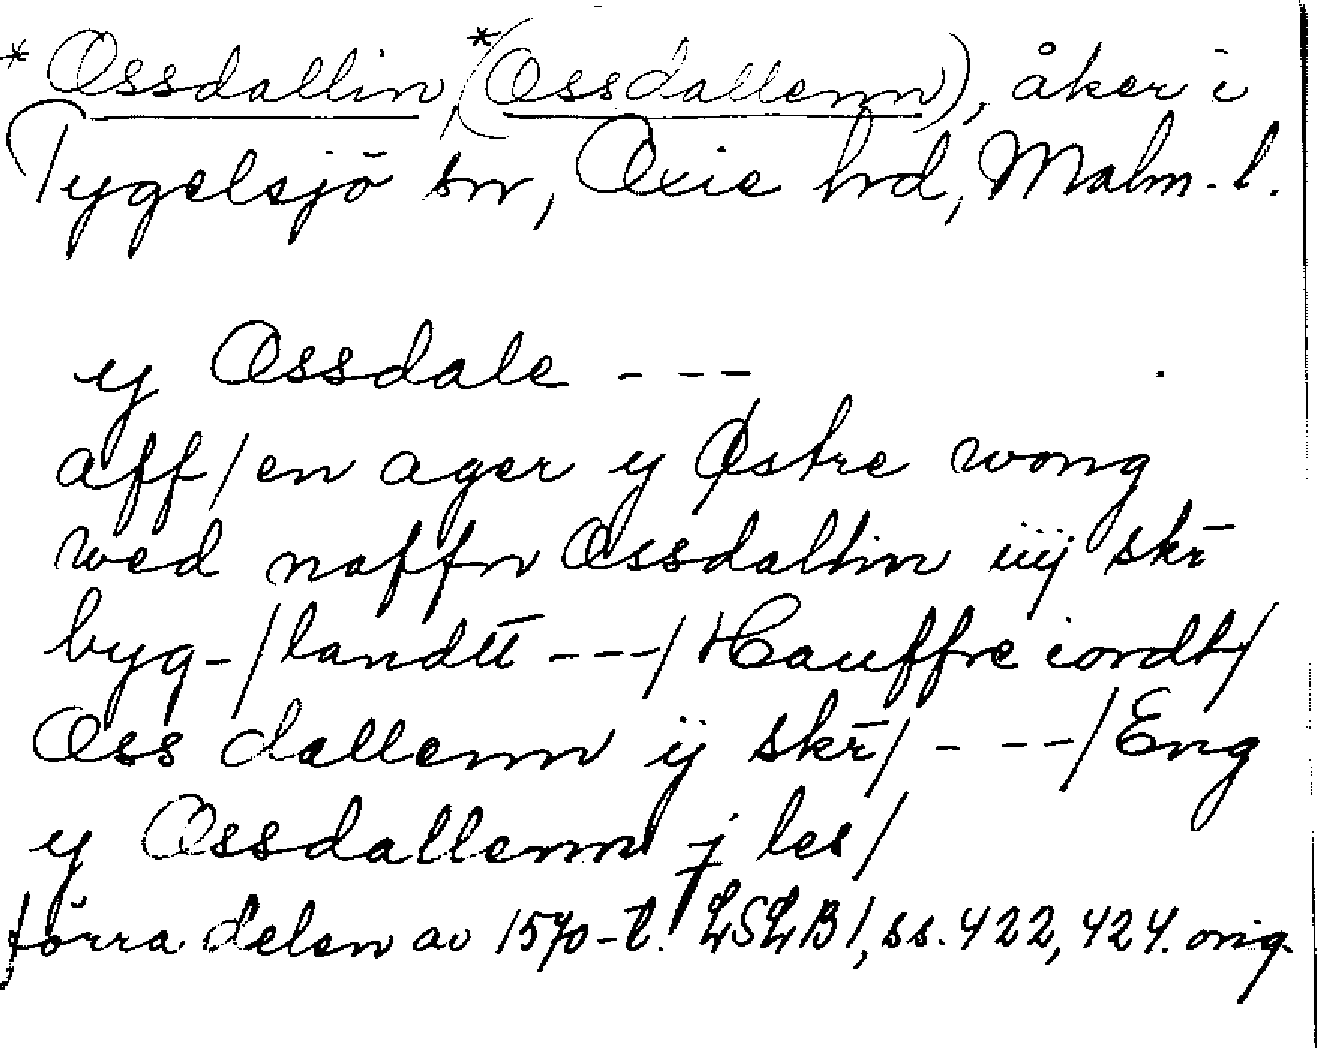 *Ossdallin, *(Ossdallenn), åker i
Tygelsjö sn, Oxie hd, Malm. l.
y Ossdale ---
aff / en ager y Østre wong
wed naffn Ossdallin iiij skr̄
byg- / landtt --- / Hauffre iordt /
Oss dallenn ij skr̄ / - -- / Eng
y Ossdallenn j les /
förra delen av 1570-t. LSLB 1, ss. 422, 424. orig.